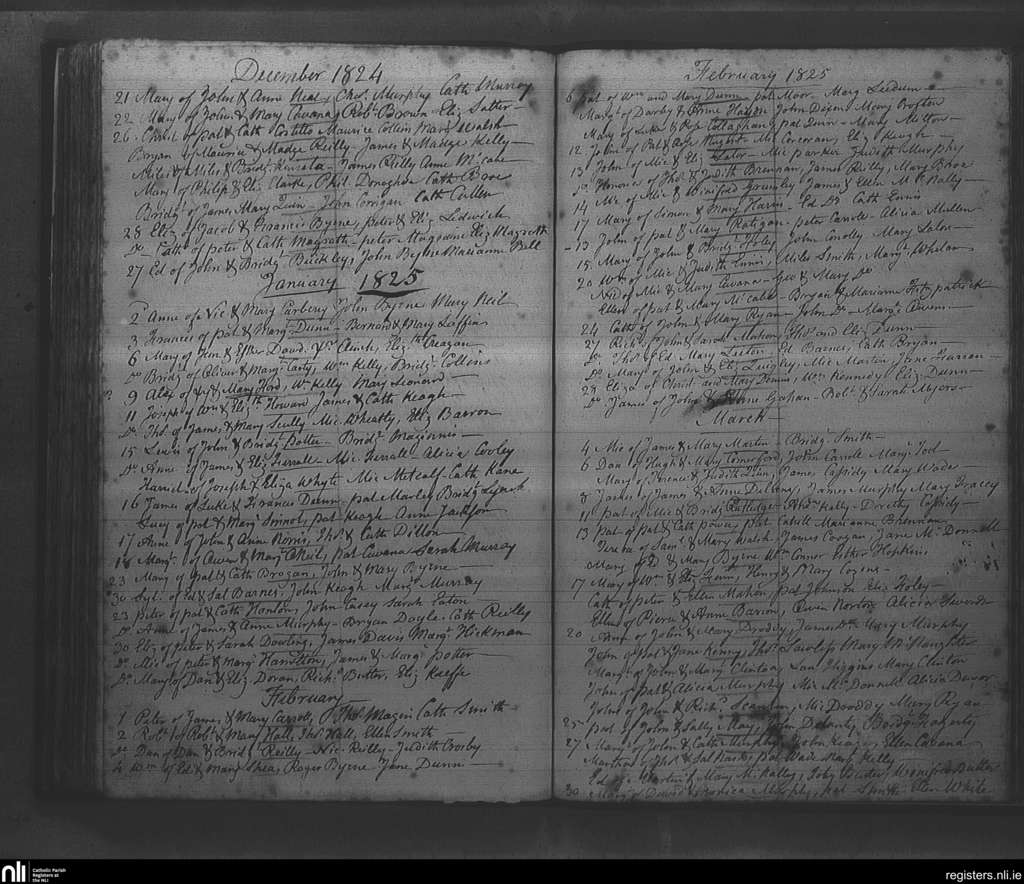 December 1824
21 Mary of John & Anne Neal, Chrs. Murphy Cath Murray
22 Mary of John & Mary Cavana, Robt. Brown Eliz Salter
26 Christ of pat & Cath Costello Maurice Collins Marg. Walsh
Bryan of Maurice & Madge Reilly James & Madge Kelly
Miles of Miles & Bridgt. James Reilly Anne McCane
Mary of Philip & Eliz Clarke, Phil. Donaghoe Cath Broe
Bridgt. of James Mary Quin - John Corrigan Cath Cullen
28 Eliz of Jacob & Frances Byrne, peter & Eliz Ledwich
Do. Cath of peter & Cath Magrath - peter Eliz Magrath
27 Ed of John & Bridgt. Buckley, John Byrne Mariann Bell
January 1825
2 Anne of Nic & Mary Carbery John Byrne Mary Neil
3 Frances of pat & Margt. Dunn - Bernard & Mary Laffin
6 Mary of & Esther Dowd, Clinch, Elizth. Creagan
Do. Bridgt of Oliver & Margt. Carty, Wm Kelly, Bridgt. Collins
9 Alex of & Mary Ford, Wm Kelly Mary Leonard
11 Joseph of Wm & Elizth. Howard James & Cath Keogh
Do. Thos. of James & Mary Scully Mic. Wheatly, Eliz Barron
15 Lewis of John & Bridgt. Potter - Bridgt. Maginnis
Do. Anne of James & Eliz Farrell - Mic. Farrell - Alicia Corley
Harriet of Joseph & Eliza Whyte Mic Metcalf - Cath Kane
16 James of Luke & Frances Dunn pat Marley Bridgt. Lynch
Lucy of pat & Margt. Sinnot, pat Keogh Anne Jackson
17 Anne of John & Anne Norris, Thos. & Cath Dillon
18 Margt. of Owen & Margt. O'Neil, pat Cavana Sarah Murray
23 Mary of pat & Cath Brogan, John & Mary Byrne
30 Syl. of Ed & Sal Barnes, John Keogh Margt. Murray
23 Peter of pat & Cath Hanlon, John Casey Sarah Eaton
Do. Anne of James & Anne Murphy - Bryan Doyle - Cath Reilly
30 Eliz of peter & Sarah Dowling, James Davis Margt. Hickman
Do. Mic of peter & Margt. Hamilton, James & Margt. Potter
Do. Mary of Dan & Eliz Doran, Richd. Butler, Eliz Keeffe
February
1 Peter of James & Mary Carroll, Thos. Magin Cath Smith
2 Robt. of Robt. & Mary Hall, Thos. Hall, Ellen Smith
Do. Dan of Dan & Bridgt. Reilly - Nic. Reilly - Judith Crosby
4 Wm of Ed & Margt. Shea, Roger Byrne Jane Dunn
February 1825
6 Pat of Wm and Mary Dunn pat Moor Marg
Margt. of Darby & Anne Hayden John Dixon Mary Crofton
Mary of Luke & Rose Callaghan, pat Quin - Mary Sutton
12 John of Pat & Rose Nugent - Mic Corcoran, Eliz Keogh
13 John of Mic & Eliz Lalor - Mic Parker Judith Murphy
Do. Honour of Thos. & Judith Brennan, James Reilly, Mary
14 Mic of Mic & Winifred Gormley James & Ellen McNally
17 Mary of Simon & Mary Harris - Ed Do. Cath Ennis
13 John of pat & Mary Ratigan - peter Carroll - Alicia Mullen
15 Mary of John & Bridgt. Foley John Conolly Mary Lalor
20 Wm of Mic & Judith Ennis, Miles Smith, Margt. Whelan
Ned of Mic & Mary Cavana - Geo & Mary Do.
Ellen of pat & Mary McCabe - Bryan & Marianne Fitzpatrick
24 Cath of John & Mary Ryan - John Do. Margt. Owens
27 Rich of John & Sarah Thos. and Eliz Dunn
Do. Thos. of Ed. Mary Ed. Barnes, Cath Bryan
Do. Mary of John & Eliz Quigley, Mic Martin, Jane
23 Eliza of Christ and Mary Dunn, Wm Kennedy Eliz Dunn
Do. James of John & Anne Gahan - Robt. & Sarah Myers
March
4 Mic of James & Mary Martin - Bridgt. Smith
6 Dan of Hugh & Mary Comerford, John Carroll Mary
Mary of Terence & Judith Quin, James Cassidy Mary Wade
8 James of James & Anne Delany, James Murphy Mary Tracey
11 Pat of Mic & Bridgt. Rutledge Kelly - Dorothy Cassidy
13 Pat of pat & Cath Power, pat Cahill Marianne Brennan
Teresa of Saml. & Mary Walsh James Coogan, Jane McDonnell
Mary of & Mary Byrne Wm Connor Esther Hopkins
17 Mary of Wm & Henry & Mary
Cath of peter & Ellen Mahon, pat Johnson Eliz Foley
Ellen of Pierce & Anne Barron, Owen Norton Alicia
20 Anne of John & Mary Droddy, James Do. Mary Murphy
John of pat & Jane Kenny, Thos. Lawless Mary McSlaughter
Margt. of John & Margt. Clinton, Lau Higgins Mary Clinton
John of pat & Alicia Murphy Mic McDonnell Alicia Devor
John of John & Richd. Scanlan, Mic Droddy Mary Ryan
25 Pat of John & Sally May, John Delahunty Bridgt Fogarty
27 Margt. of John & Cath Murphy, John Keogh, Ellen Cavana
Martha of Thos. & Sal pat Wade Mary Kelly
Ed of Martin & Mary McNally, Toby Butler Winifred Butler
30 Margt. of David Veronica Murphy, pat Smith Ellen White
nli
Catholic Parish
Registers at
the NLI
registers.nli.ie